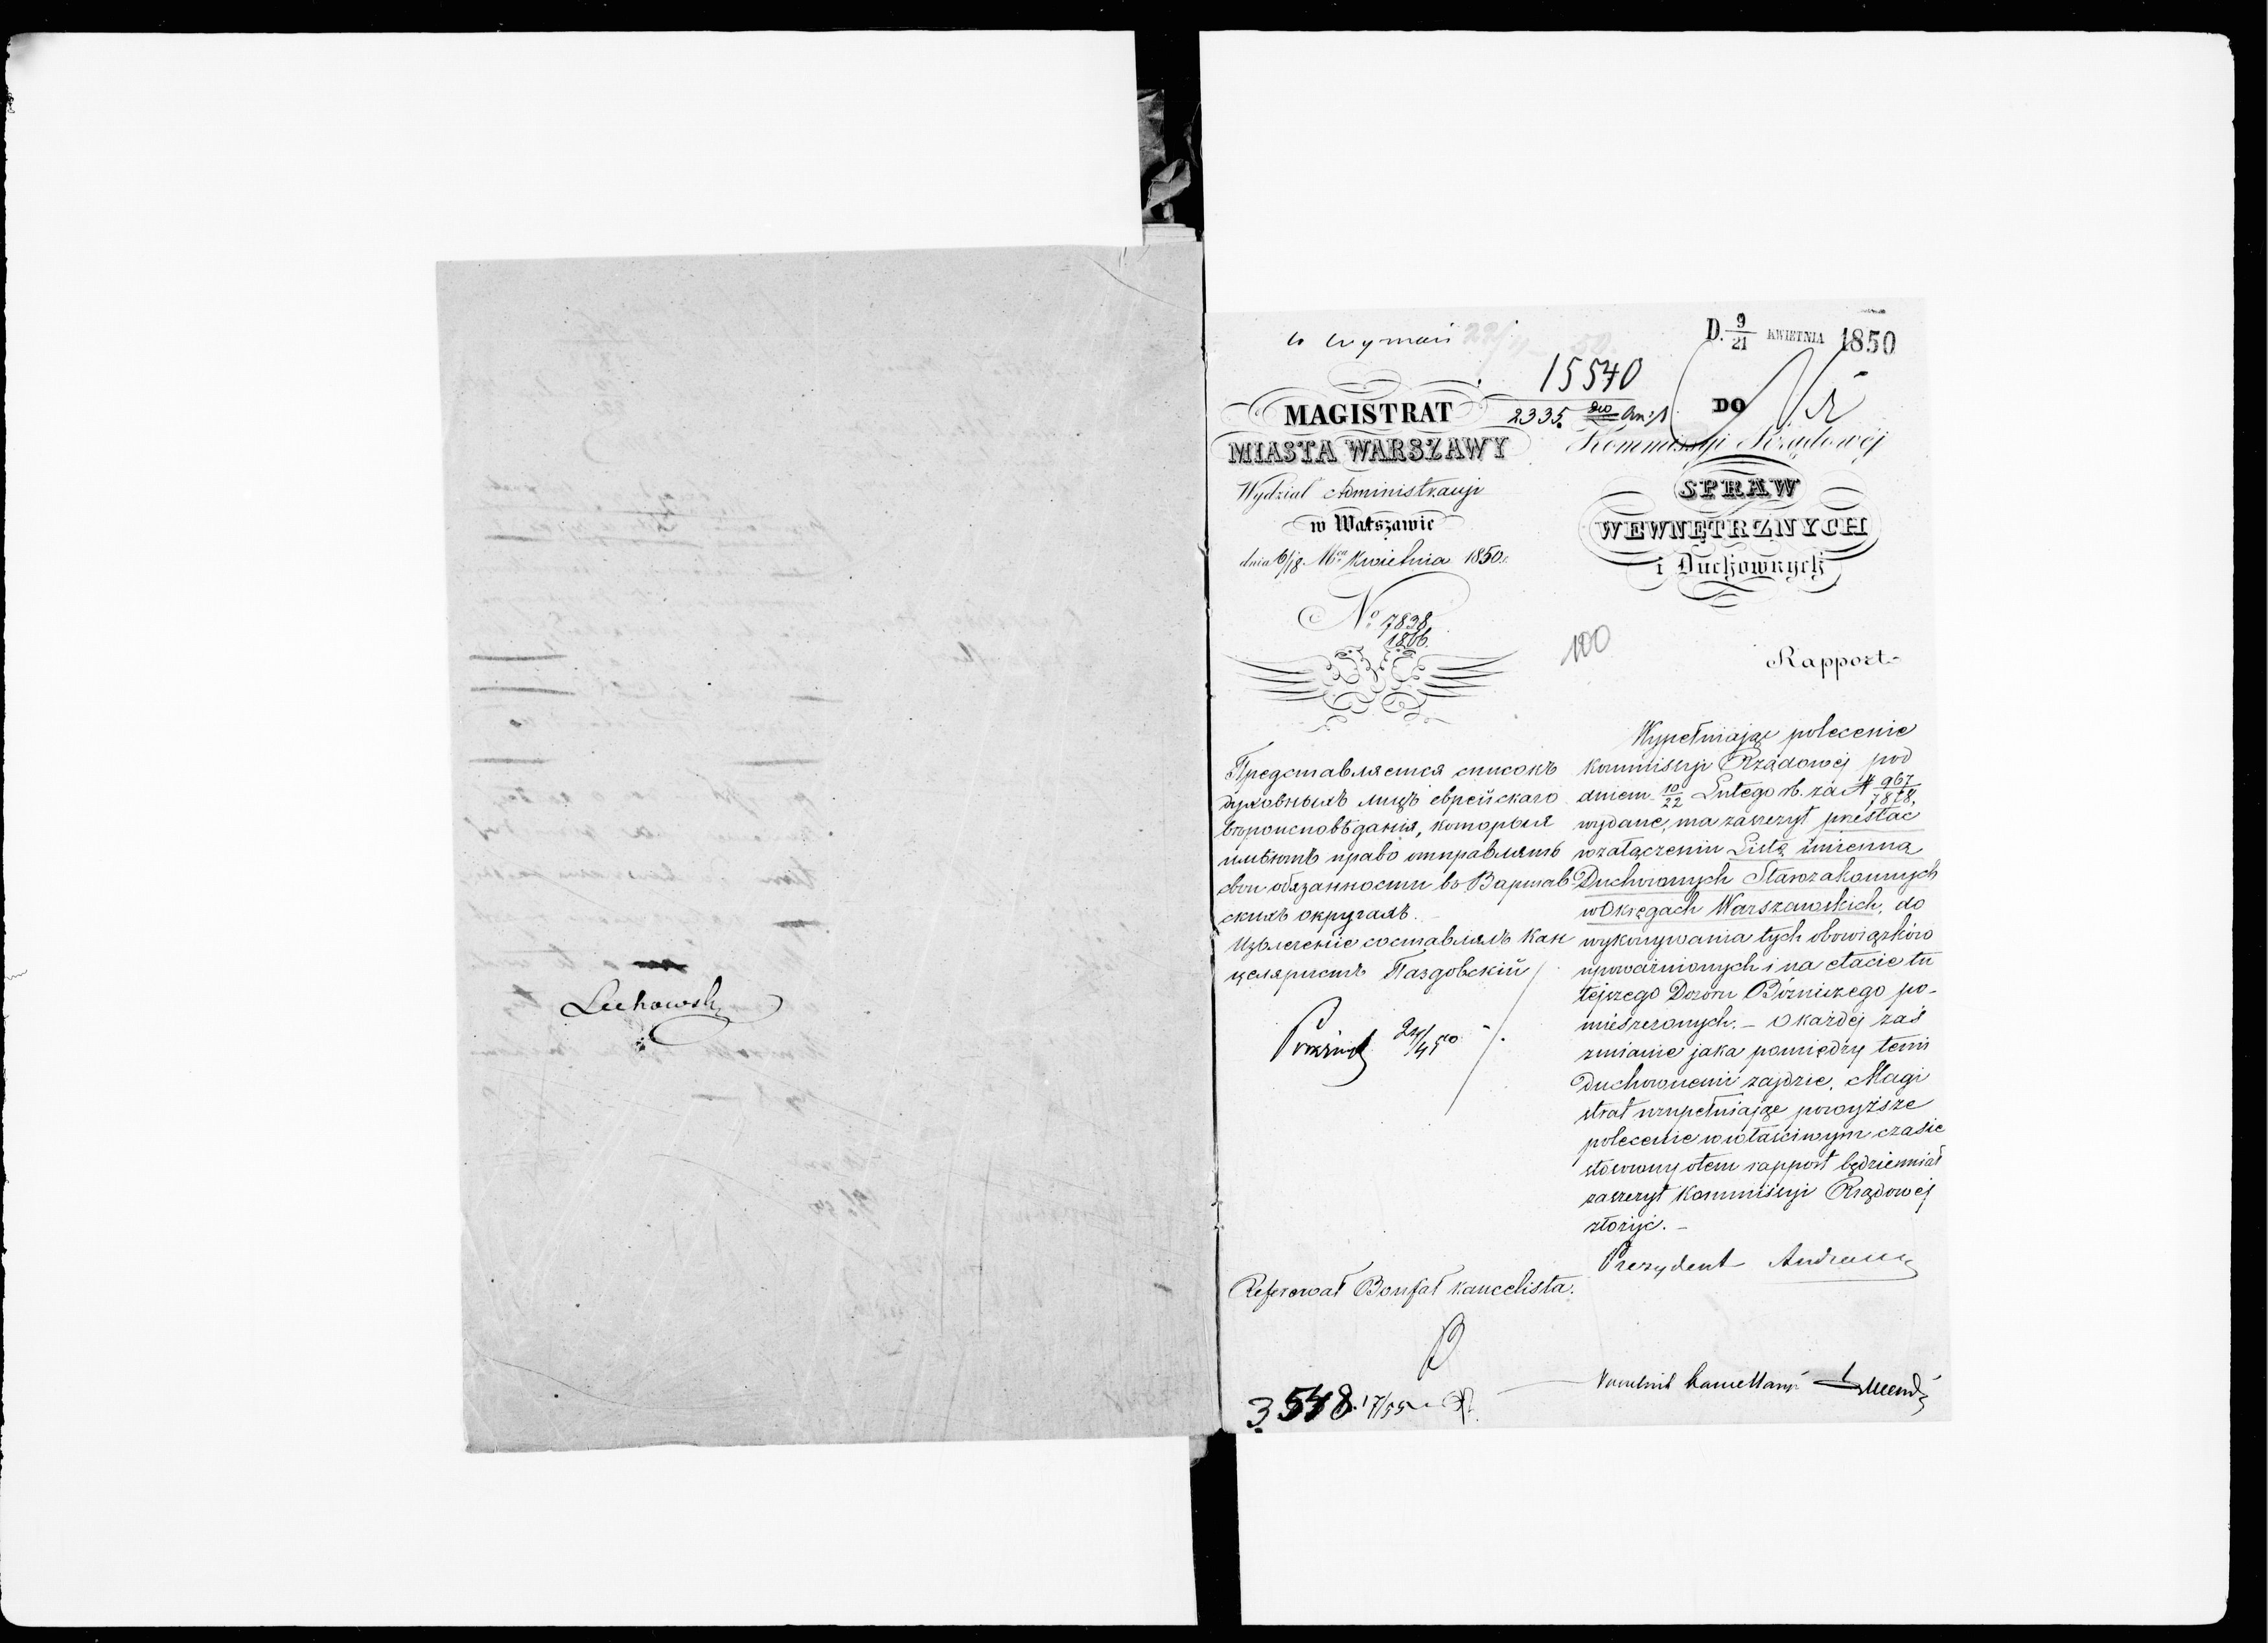 Luchowski
D. 9/21 KWIETNIA 1850
15540
2335
MAGISTRAT
MIASTA WARSZAWY
Wydział Administracyi
w Warszawie
dnia 6/18 Mca Kwietnia 1850 r.
No 7838
1866.
DO
Kommissyi Rządowéj
SPRAW
WEWNĘTRZNYCH
i Duchownych
100
Rapport
Представляется списокъ
духовныхъ лицъ еврейскаго
вѣроисповѣданія, которыя
имѣютъ право отправлять
свои обязанности въ Варшав
скихъ округахъ.
Извлеченіе составлялъ Кан
целяристъ Паздовскій
Wypełniając polecenie
Kommissyi Rządowéj pod
dniem 10/22 Lutego rb. za N 967/7878,
wydane, ma zaszczyt przesłać
w załączeniu Listę imienną
Duchownych Starozakonnych
w Okręgach Warszawskich, do
wykonywania tych obowiązków
upoważnionych i na etacie tu
tejszego Dozoru Bożniczego po-
mieszczonych. – O każdéj zaś
zmianie jaka pomiędzy temi
Duchownemi zajdzie, Magi
strat uzupełniając powyższe
polecenie w właściwym czasie
stosowny o tem rapport będzie miał
zaszczyt Kommissyi Rządowéj
złożyć. –
Prezydent
Referował Bonfał Kancelista.
3548